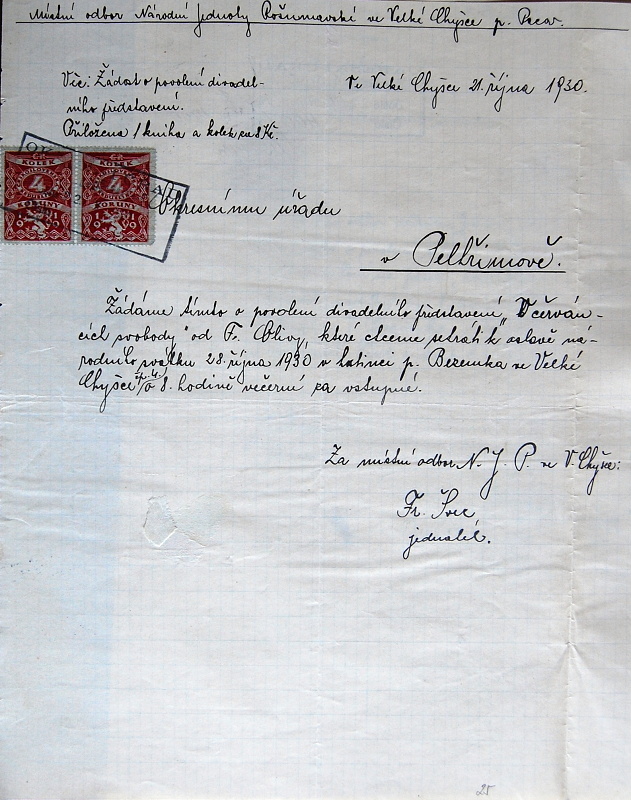 Místní odbor Národní Jednoty Pošumavské ve Velké Chyšce p. Pacov.
Věc: Žádost o povolení divadel-
ního představení.
Přiložena 1 kniha a kolek za 8 Kč.
Ve Velké Chyšce 21. října 1930.
KOLEK KOLEK
4 4
KORUNY KORUNY
Okresnímu úřadu
v Pelhřimově.
Žádáme tímto o povolení divadelního představení „V červán-
cích svobody" od F. Olivy, které chceme sehrát k oslavě ná-
rodního svátku 28. října 1930 v hostinci p. Bezemka ve Velké
Chyšce o 8. hodině večerní za vstupné.
Za místní odbor N. J. P. ve V. Chyšce:
Fr. Švec
jednatel.
25